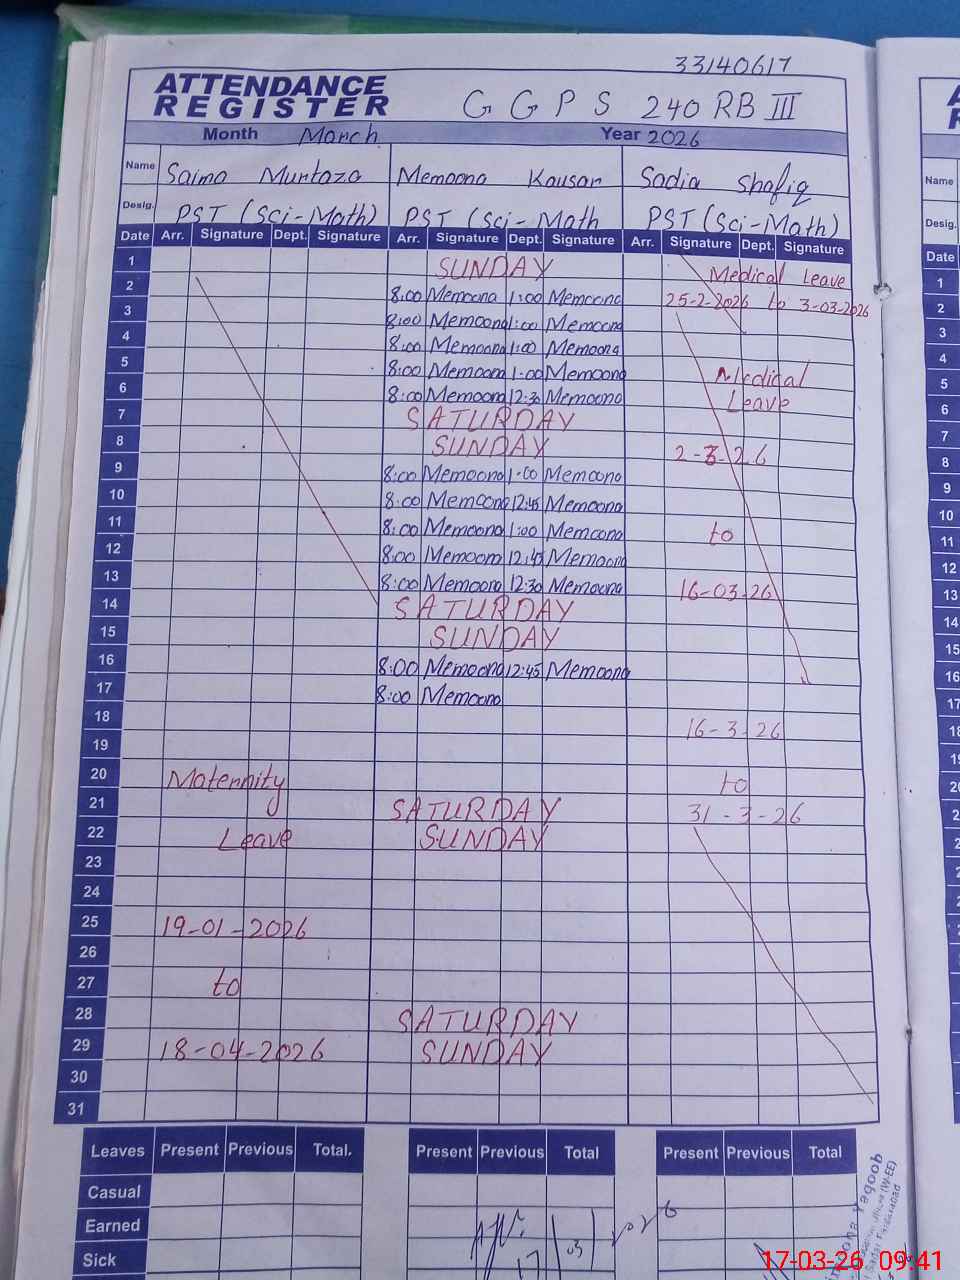 33140617
ATTENDANCE
REGISTER
G G P S 240 RB III
Month March Year 2026
Name Saima Murtaza Memoona Kousar Sadia Shafiq
Desig. PST (Sci-Math) PST (Sci-Math PST (Sci-Math)
Date Arr. Signature Dept. Signature Arr. Signature Dept. Signature Arr. Signature Dept. Signature
1 SUNDAY Medical Leave
2 8:00 Memoona 1:00 Memoona 25-2-2026 to 3-03-2026
3 8:00 Memoona 1:00 Memoona
4 8:00 Memoona 1:00 Memoona
5 8:00 Memoona 1:00 Memoona Medical
6 8:00 Memoona 12:30 Memoona Leave
7 SATURDAY
8 SUNDAY 2-3-26
9 8:00 Memoona 1:00 Memoona
10 8:00 Memoona 12:45 Memoona
11 8:00 Memoona 1:00 Memoona to
12 8:00 Memoona 12:45 Memoona
13 8:00 Memoona 12:30 Memoona 16-03-26
14 SATURDAY
15 SUNDAY
16 8:00 Memoona 12:45 Memoona
17 8:00 Memoona
18 16-3-26
19
20 Maternity to
21 SATURDAY 31-3-26
22 Leave SUNDAY
23
24
25 19-01-2026
26
27 to
28 SATURDAY
29 18-04-2026 SUNDAY
30
31
Leaves Present Previous Total. Present Previous Total Present Previous Total
Casual
Earned
Sick
17 03 2026
Yaqoob
Name
Desig.
Date
1
2
3
4
5
6
7
8
9
10
11
12
13
14
15
16
17
18
17-03-26 09:41